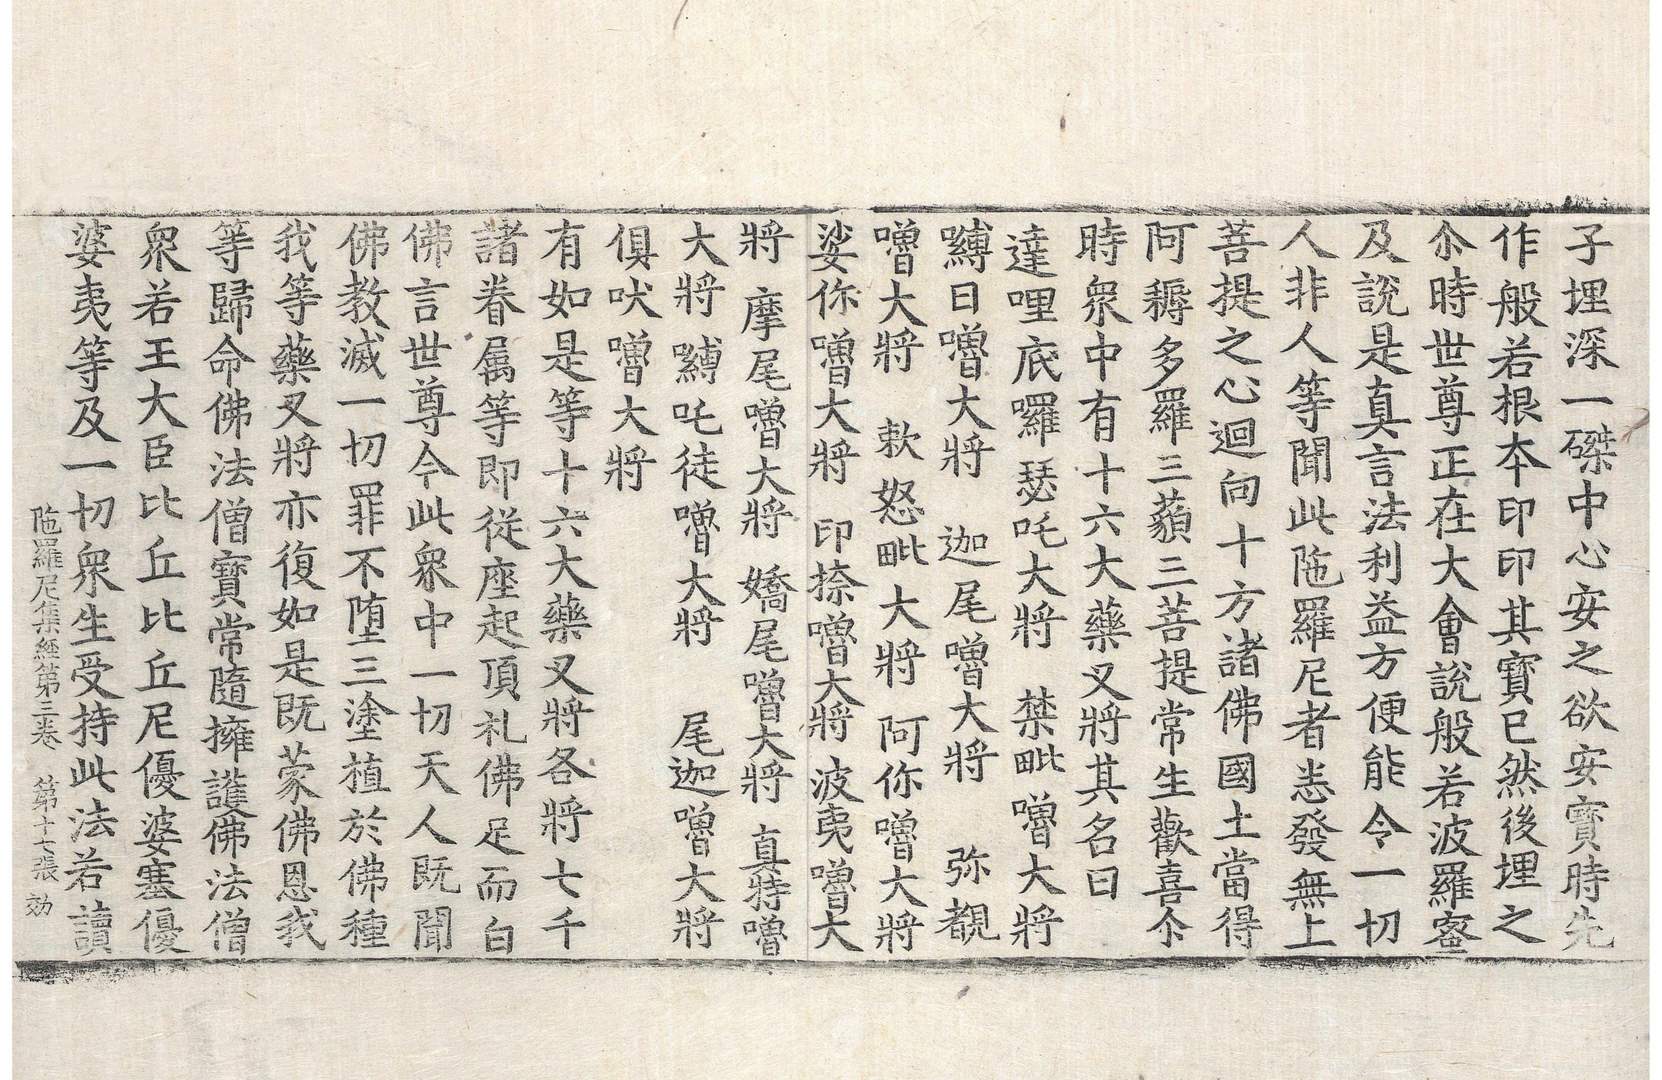 子埋深一磔中心安之欲安寶時先
作般若根本印印其寶已然後埋之
尒時世尊正在大會說般若波羅蜜
及說是真言法利益方便能令一切
人非人等聞此陁羅尼者悉發無上
菩提之心迴向十方諸佛國土當得
阿耨多羅三藐三菩提常生歡喜尒
時衆中有十六大藥叉將其名曰
達哩底囉瑟吒大將 禁毗嚕大將
嚩日嚕大將 迦尾嚕大將 弥覩
嚕大將 欶怒毗大將 阿你嚕大將
娑你嚕大將 印捺嚕大將 波夷嚕大
將 摩尾嚕大將 嬌尾嚕大將 真特嚕
大將 嚩吒徒嚕大將 尾迦嚕大將
俱吠嚕大將
有如是等十六大藥叉將各將七千
諸眷属等即從座起頂礼佛足而白
佛言世尊今此衆中一切天人既聞
佛教滅一切罪不堕三塗植於佛種
我等藥叉將亦復如是既蒙佛恩我
等歸命佛法僧寶常隨擁護佛法僧
衆若王大臣比丘比丘尼優婆塞優
婆夷等及一切衆生受持此法若讀
陁羅尼集經第三卷 第十七張 効